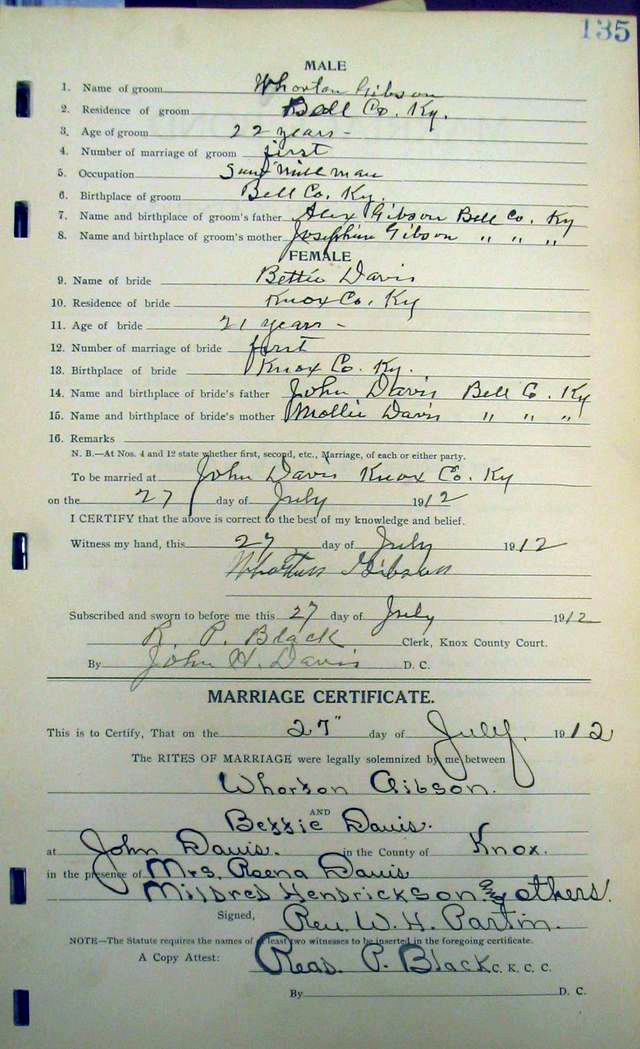 135
MALE
1. Name of groom Whorton Gibson
2. Residence of groom Bell Co. Ky.
3. Age of groom 22 years -
4. Number of marriage of groom first
5. Occupation Saw mill man
6. Birthplace of groom Bell Co. Ky.
7. Name and birthplace of groom's father Alex Gibson Bell Co. Ky
8. Name and birthplace of groom's mother Josephine Gibson " " "
FEMALE
9. Name of bride Bettie Davis
10. Residence of bride Knox Co, Ky
11. Age of bride 21 years -
12. Number of marriage of bride first
13. Birthplace of bride Knox Co. Ky.
14. Name and birthplace of bride's father John Davis Bell Co. Ky
15. Name and birthplace of bride's mother Mollie Davis " " "
16. Remarks
N. B.—At Nos. 4 and 12 state whether first, second, etc., Marriage, of each or either party.
To be married at John Davis Knox Co. Ky
on the 27 day of July 1912
I CERTIFY that the above is correct to the best of my knowledge and belief.
Witness my hand, this 27 day of July 1912
Gibson
Subscribed and sworn to before me this 27 day of July 1912
R. P. Black Clerk, Knox County Court.
By John H. Davis D. C.
MARRIAGE CERTIFICATE.
This is to Certify, That on the 27" day of July, 1912
The RITES OF MARRIAGE were legally solemnized by me between
Whorton Gibson.
AND
Bettie Davis.
at John Davis. in the County of Knox.
in the presence of Mrs. Reena Davis
Mildred Hendrickson and others.
Signed, Rev. W. H. Partin.
NOTE—The Statute requires the names of at least two witnesses to be inserted in the foregoing certificate.
A Copy Attest: Reas. P. Black C. K. C. C.
By D. C.